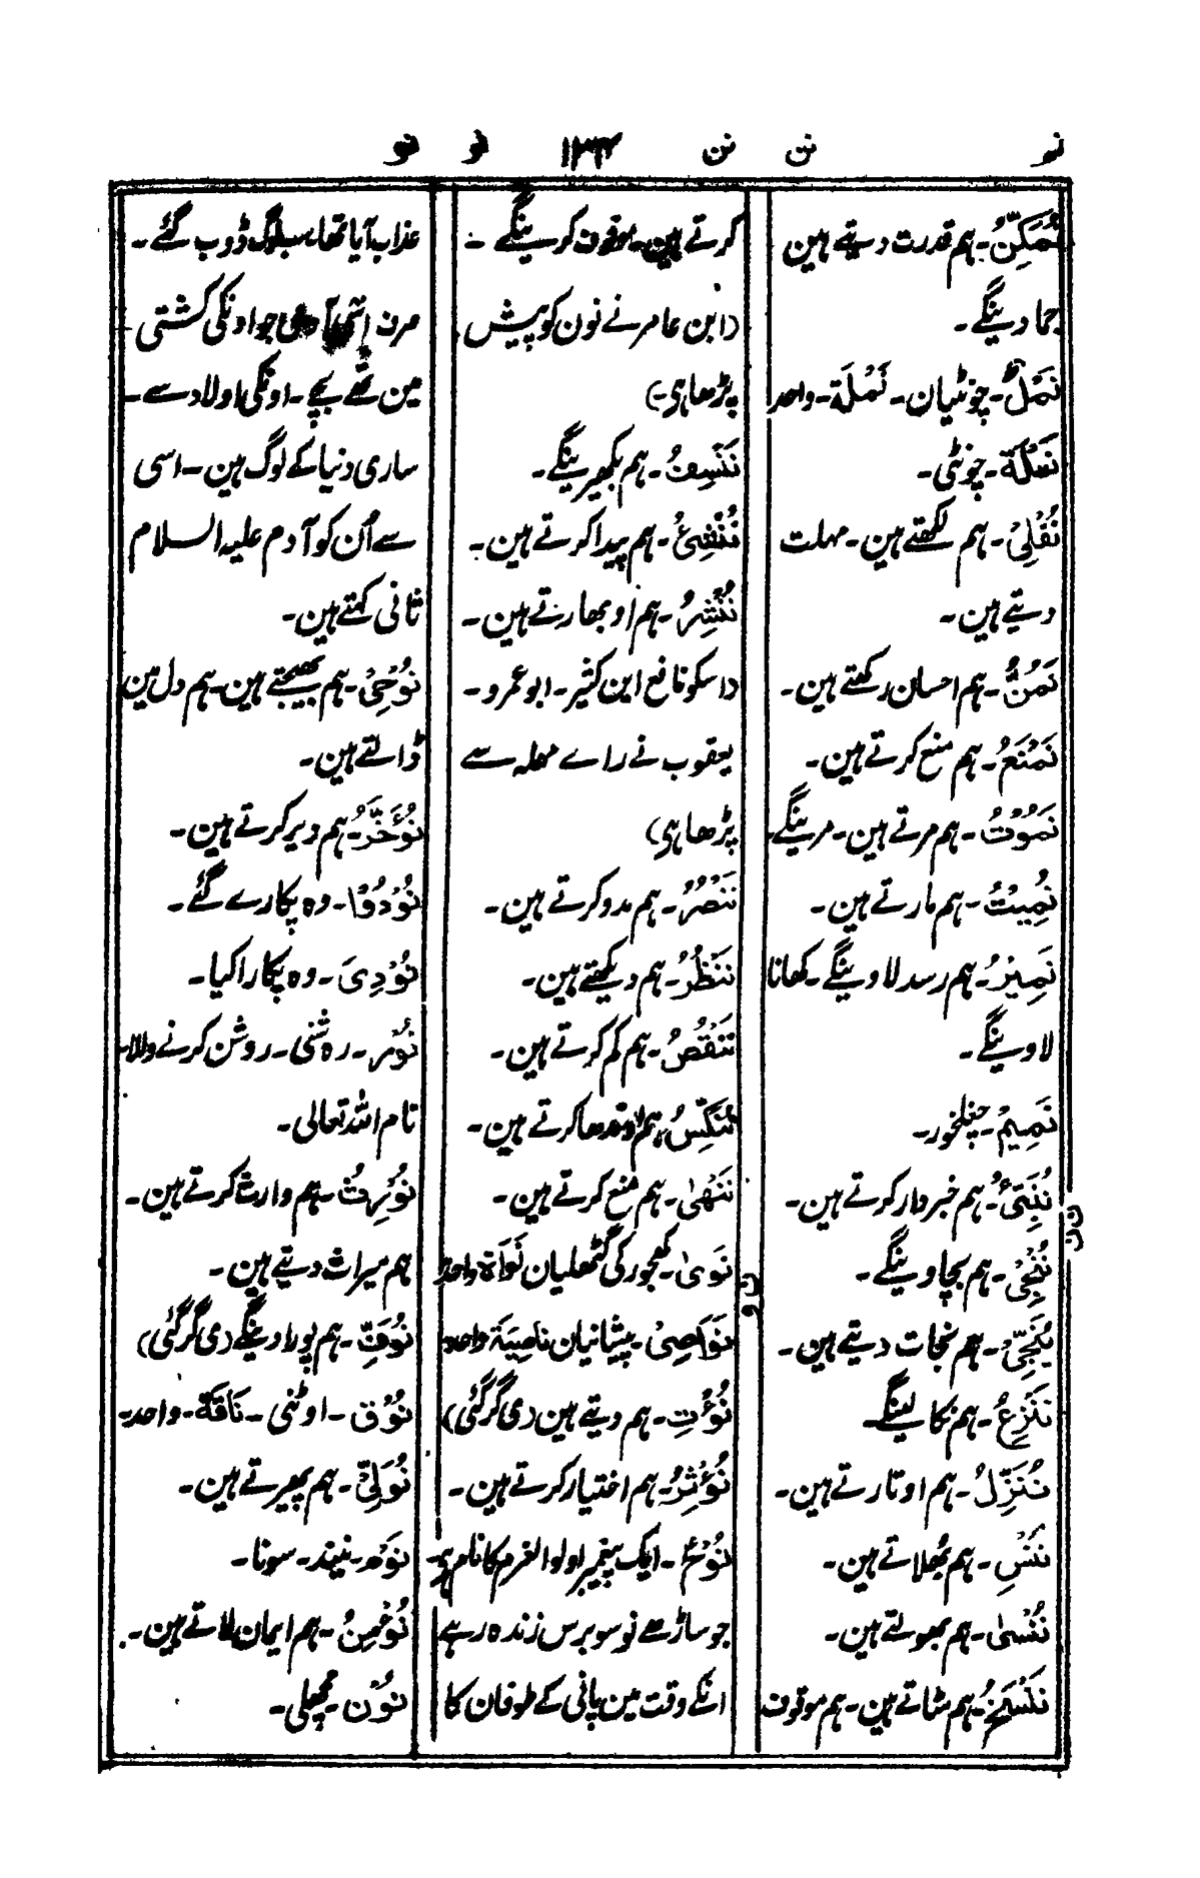 نو نن نن ۱۳۴ نو نو
نُمَکِّنُ۔ ہم قدرت دیتے ہین
جما دینگے۔
نَمْلٌ۔ چونٹیان۔ نَمْلَة۔ واحد
نَمْلَة۔ چونٹی۔
نُمْلِیْ۔ ہم لکھتے ہین۔ مہلت
دیتے ہین۔
نَمُنُّ۔ ہم احسان رکھتے ہین۔
نَمْنَعُ۔ ہم منع کرتے ہین۔
نَمُوْتُ۔ ہم مرتے ہین۔ مرینگے۔
نُمِیْتُ۔ ہم مارتے ہین۔
نَمِیْرُ۔ ہم رسد لاوینگے۔ کھانا
لاوینگے۔
نَمِیْمٌ۔ چغلخور۔
نن
نُنَبِّئُ۔ ہم خبردار کرتے ہین۔
نُنْجِیْ۔ ہم بچاوینگے۔
نُنَجِّیْ۔ ہم نجات دیتے ہین۔
نَنْزِعُ۔ ہم نکالینگے۔
نُنَزِّلُ۔ ہم اوتارتے ہین۔
نُنْسِ۔ ہم بُھلاتے ہین۔
نَنْسٰی۔ ہم بھولتے ہین۔
نَنْسَخْ۔ ہم مٹاتے ہین۔ ہم موقوف
کرتے ہین۔ موقوف کرینگے۔
(ابن عامر نے نون کو پیش
پڑھا ہی۔)
نَنْسِفُ۔ ہم بکھیرینگے۔
نُنْشِئُ۔ ہم پیدا کرتے ہین۔
نُنْشِرُ۔ ہم اوبھارتے ہین۔
(اسکو نافع ابن کثیر۔ ابو عمرو۔
یعقوب نے راے مھلہ سے
پڑھا ہی)
نَنْصُرُ۔ ہم مدد کرتے ہین۔
نَنْظُرُ۔ ہم دیکھتے ہین۔
نَنْقُصُ۔ ہم کم کرتے ہین۔
نُنَکِّسُ۔ ہم اوندھا کرتے ہین۔
نَنْهٰی۔ ہم منع کرتے ہین۔
ن و
نَوٰی۔ کھجور کی گٹھلیان نَوَاة واحد
نَوَاصِیْ۔ پیشانیان ناصِیَة واحد
نُؤْتِ۔ ہم دیتے ہین (ی گر گئی)
نُؤْثِرُ۔ ہم اختیار کرتے ہین۔
نُوْحٌ۔ ایک پیغمبر اولو العزم کا نام ہے۔
جو ساڑھے نو سو برس زندہ رہے
انکے وقت مین پانی کے طوفان کا
عذاب آیا تھا۔ سب لوگ ڈوب گئے۔
صرف اسّی آدمی جو اونکی کشتی
مین تھے بچے۔ اونکی اولاد سے۔
ساری دنیا کے لوگ ہین۔ اسی
سے اُن کو آدم علیہ السلام
ثانی کہتے ہین۔
نُوْحِیْ۔ ہم بھیجتے ہین۔ ہم دل مین
ڈالتے ہین۔
نُؤَخِّرُ۔ ہم دیر کرتے ہین۔
نُوْدُوْا۔ وہ پکارے گئے۔
نُوْدِیَ۔ وہ پکارا گیا۔
نُوْر۔ روشنی۔ روشن کرنے والا۔
نام اللہ تعالی۔
نُوْرِثُ۔ ہم وارث کرتے ہین۔
ہم میراث دیتے ہین۔
نُوَفِّ۔ ہم پورا دینگے (ی گر گئی)
نُوْق۔ اونٹنی۔ نَاقَة۔ واحد۔
نُوَلِّیْ۔ ہم پھیرتے ہین۔
نَوْم۔ نیند۔ سونا۔
نُؤْمِنُ۔ ہم ایمان لاتے ہین۔
نُوْن۔ مچھلی۔